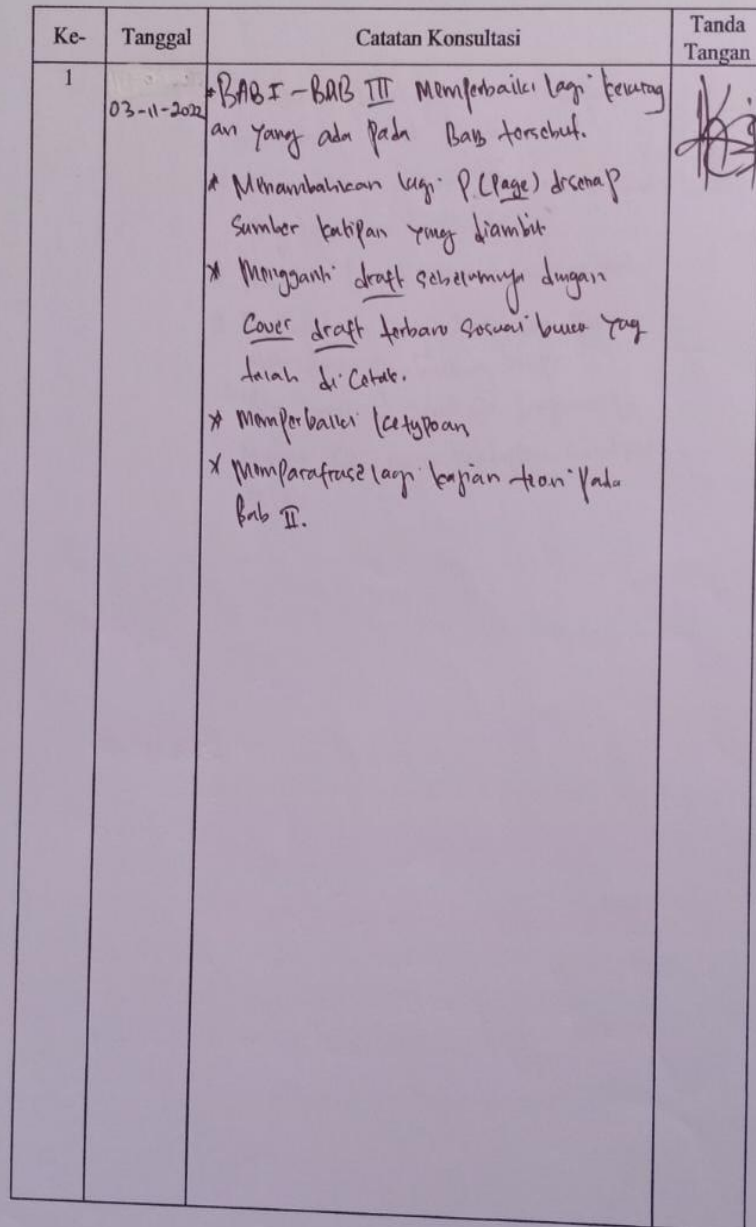 Ke-
Tanggal
Catatan Konsultasi
Tanda
Tangan
1
03-11-2022
* BAB I - BAB III Memperbaiki lagi kekurang
an yang ada pada Bab tersebut.
* Menambahkan lagi P. (Page) disetiap
Sumber kutipan yang diambil
* Mengganti draft sebelumnya dengan
Cover draft terbaru sesuai buku yag
telah di Cetak.
* Memperbaiki ketypoan
* Memparafrase lagi kajian teori pada
Bab II.